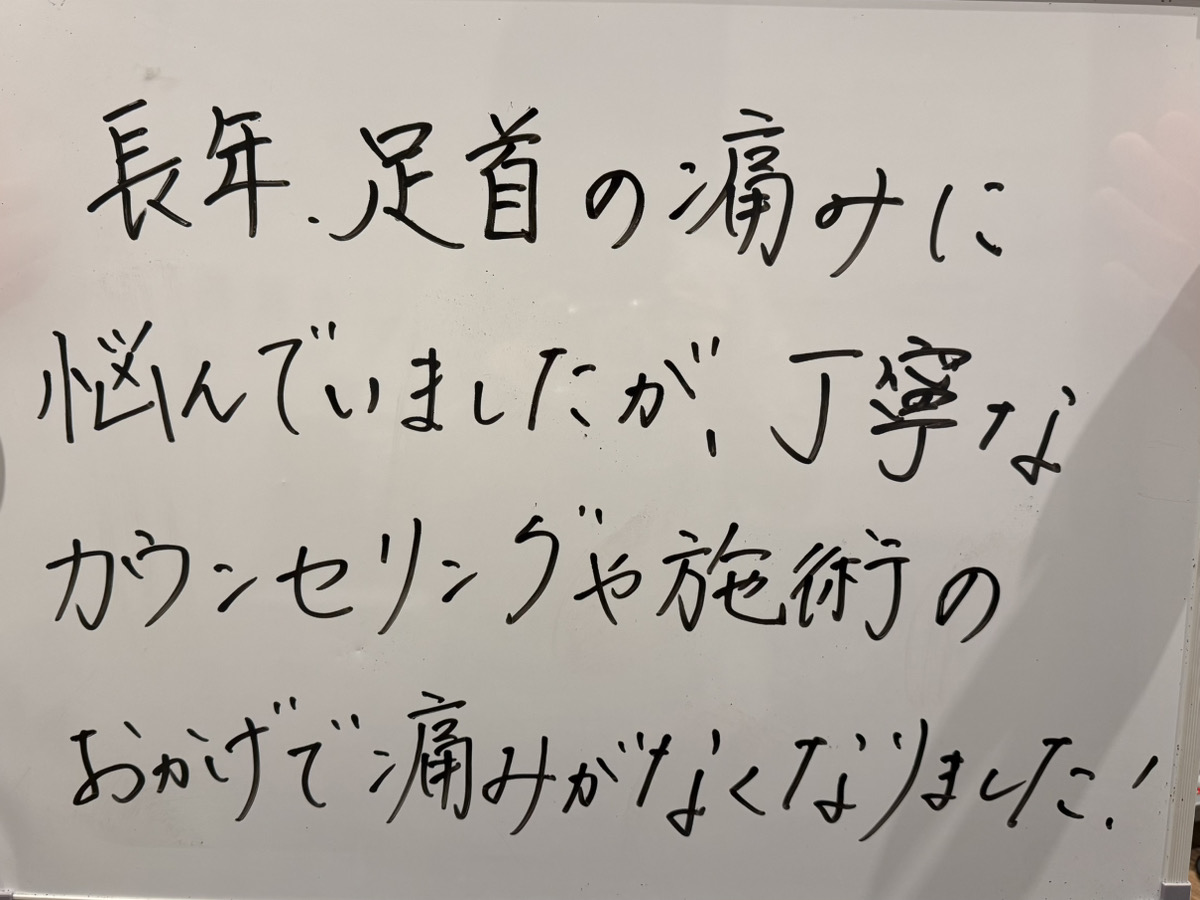 長年、足首の痛みに
悩んでいましたが、丁寧な
カウンセリングや施術の
おかげで痛みがなくなりました!